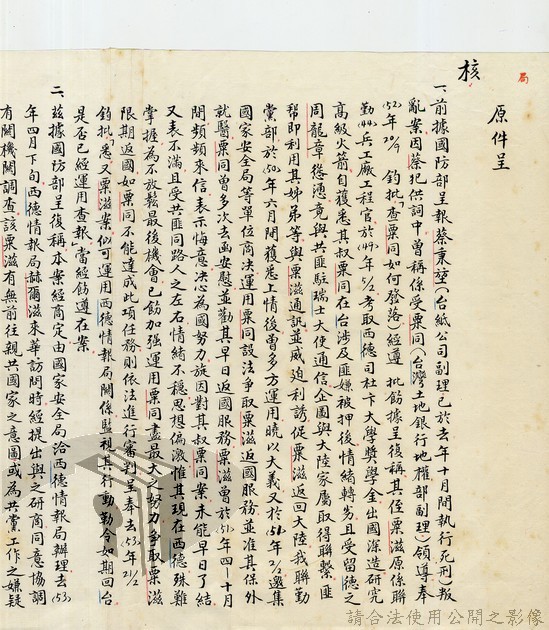 局
核
原件呈
一、前據國防部呈報蔡秉堃(台紙公司副理已於去年十月間執行死刑)叛
亂案因蔡犯供詞中曾稱係受粟同(台灣土地銀行地權部副理)領導奉
(52)年20/9 鈞批「查粟同如何發落」經遵 批飭據呈復稱其侄粟滋原係聯
勤(44)兵工廠工程官於(49)年5/2考取西德司杜卞大學獎學金出國深造研究
高級火箭自獲悉其叔粟同在台涉及匪嫌被押後情緒轉劣且受留德之
周龍章慫恿竟與共匪駐瑞士大使通信企圖與大陸家屬取得聯繫匪
幫即利用其姊弟等與粟滋通訊並威迫利誘促粟滋返回大陸我聯勤
黨部於(50)年六月間獲悉上情後曾多方運用曉以大義又於(51)年2/2邀集
國家安全局等單位商決運用粟同設法爭取粟滋返國服務並准其保外
就醫粟同曾多次去函安慰並勸其早日返國服務粟滋曾於(51)年四—十月
間頻頻來信表示悔意決心為國努力旋因對其叔粟同案未能早日了結
又表不滿且受共匪同路人之左右情緒不穩思想偏激惟其現在西德殊難
掌握為不放鬆最後機會已飭加強運用粟同盡最大之努力爭取粟滋
限期返國如粟同不能達成此項任務則依法進行審判呈奉去(53)年21/2
鈞批悉又粟滋案似可運用西德情報局關係監視其行動勸令如期回台
是否已經運用查報」當經飭遵在案
二、茲據國防部呈復稱本案經商定由國家安全局洽西德情報局辦理去(53)
年四月下旬西德情報局赫爾滋來華訪問時經提出與之研商同意協調
有關機關調查該粟滋有無前往親共國家之意圖或為共黨工作之嫌疑
請合法使用公開之影像